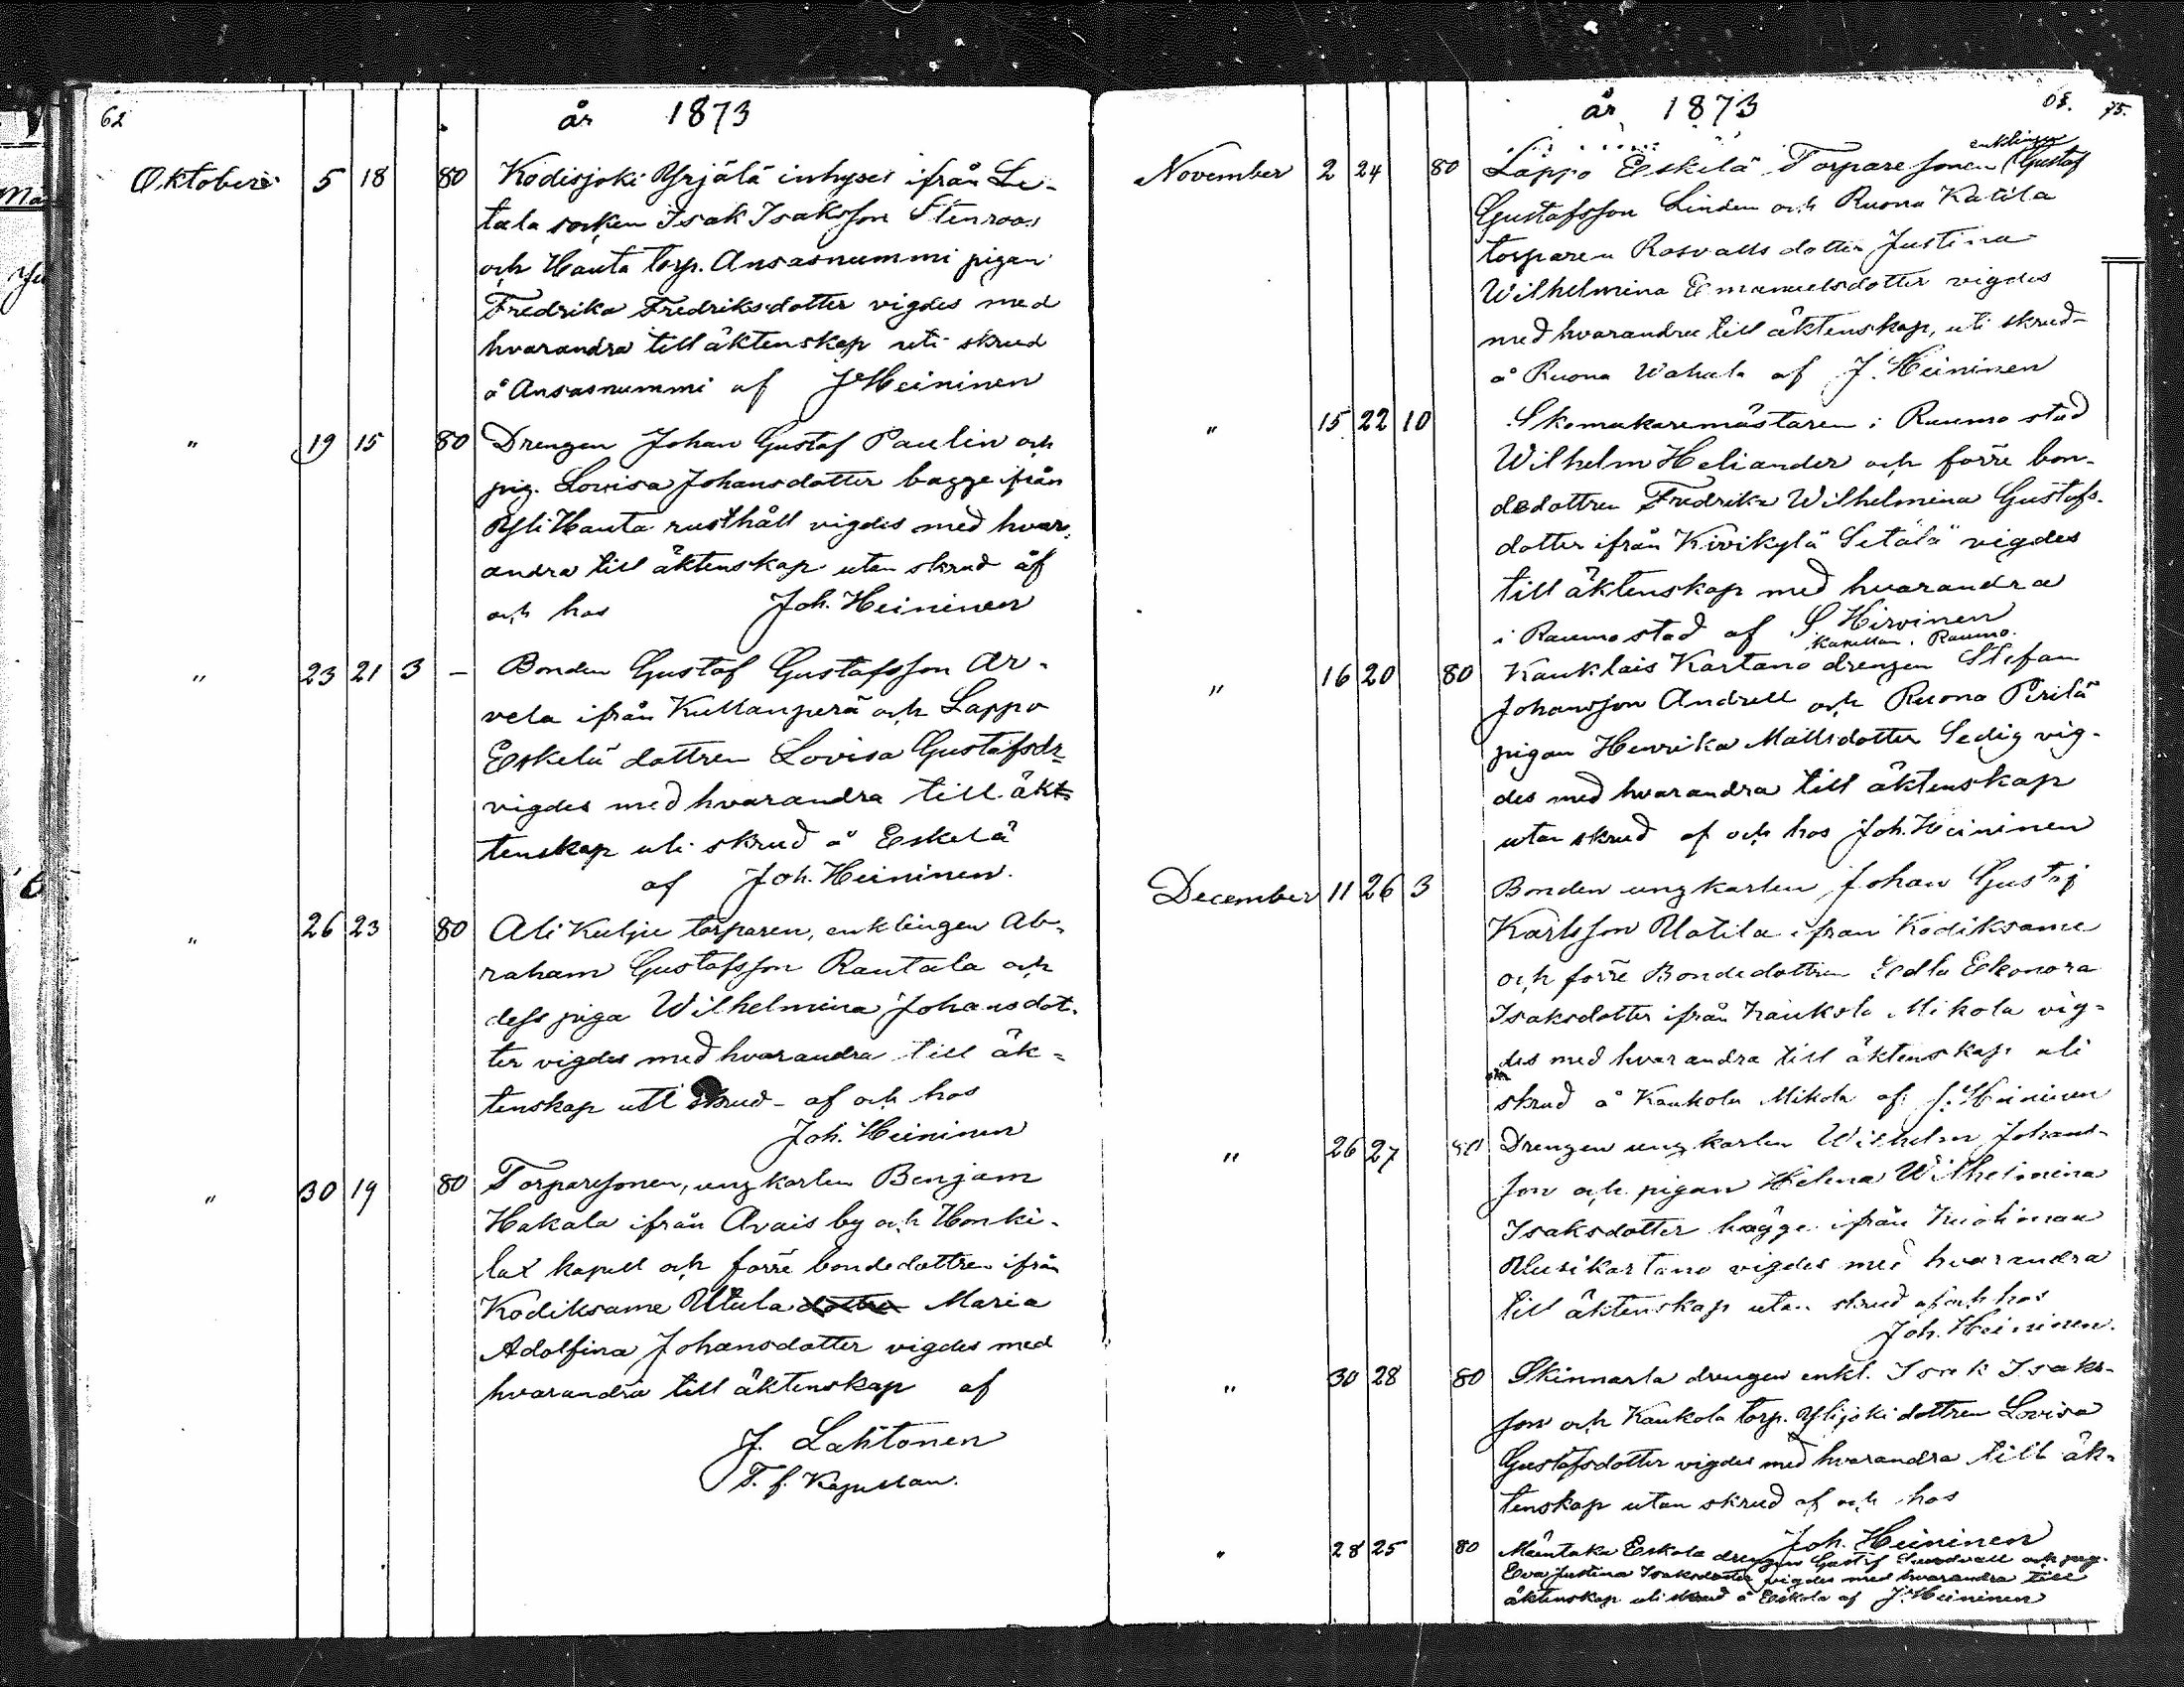 62
år 1873
Oktober 5 18 80 Kodisjoki Yrjälä inhyses ifrån Le-
tala socken Isak Isaksson Stenroos
och Hauta torp. Ansasnummi pigan
Fredrika Fredriksdotter vigdes med
hvarandra till äktenskap uti skrud
å Ansasnummi af J Heininen
" 19 15 80 Drengen Johan Gustaf Paulin och
pig. Lovisa Johansdotter bagge ifrån
Yli Hauta rusthåll vigdes med hvar-
andra till äktenskap utan skrud af
och hos Joh. Heininen
" 23 21 3 – Bonden Gustaf Gustafsson Ar-
vela ifrån Kullanperä och Lappo
Eskelä dottren Lovisa Gustafsdr
vigdes med hvarandra till äkt
tenskap uti skrud å Eskelä
af Joh. Heininen.
" 26 23 80 Ali Kulju torparen, enklingen Ab-
raham Gustafsson Rautala och
dess piga Wilhelmina Johansdot-
ter vigdes med hvarandra till äk-
tenskap uti skrud – af och hos
Joh. Heininen
" 30 19 80 Torparesonen, ungkarlen Benjam
Hakala ifrån Avais by och Honki-
lax kapell och förre bondedottren ifrån
Kodiksame Utula dotter Maria
Adolfina Johansdotter vigdes med
hvarandra till äktenskap af
J. Lahtonen
T. f. Kapellan.
75.
år 1873
enklingen
November 2 24 80 Lappo Eskelä Torpare sonen Gustaf
Gustafsson Linden och Ruona Katila
torparen Rosvalls dotter Justina
Wilhelmina Emanuelsdotter vigdes
med hvarandra till äktenskap, uti skrud
å Ruona Wahala af J. Heininen
" 15 22 10 Skomakaremästaren i Raumo stad
Wilhelm Heliander och förre bon-
dedottren Fredrika Wilhelmina Gustafs-
dotter ifrån Kivikylä Setälä vigdes
till äktenskap med hvarandra
i Raumo stad af S Hirvinen
Kapellan i Raumo.
" 16 20 80 Kauklais Kartano drengen Stefan
Johansson Andrell och Ruona Perilä
pigan Henrika Mattsdotter Sedig vig-
des med hvarandra till äktenskap
utan skrud af och hos Joh. Heininen
December 11 26 3 Bonden ungkarlen Johan Gustaf
Karlsson Uotila ifrån Kodiksame
och förre Bondedottren Edla Eleonora
Isaksdotter ifrån Kaukola Mikola vig-
des med hvarandra till äktenskap uti
skrud å Kaukola Mikola af J. Heininen
" 26 27 80 Drengen ungkarlen Wilhelm Johans-
son och pigan Helena Wilhelmina
Isaksdotter bägge ifrån
Uusikartano vigdes med hvarandra
till äktenskap utan skrud af och hos
Joh. Heininen.
" 30 28 80 Skinnarla drengen enkl. Isak Isaks-
son och Kaukola torp. Ylijoki dottren Lovisa
Gustafsdotter vigdes med hvarandra till äk-
tenskap utan skrud af och hos
Joh. Heininen
" 28 25 80 Mäntaka Eskola drengen Gustaf Lundvall och pig.
Eva Justina Isaksdotter vigdes med hvarandra till
äktenskap uti skrud å Eskola af J. Heininen